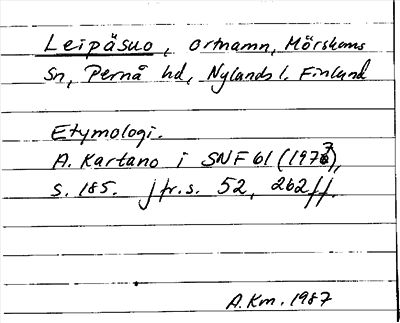 Leipäsuo, ortnamn, Mörskoms
sn, Pernå hd, Nylands l. Finland
Etymologi.
A. Kartano i SNF 61 (1973),
s. 185. jfr. s. 52, 262ff.
A.Km. 1987